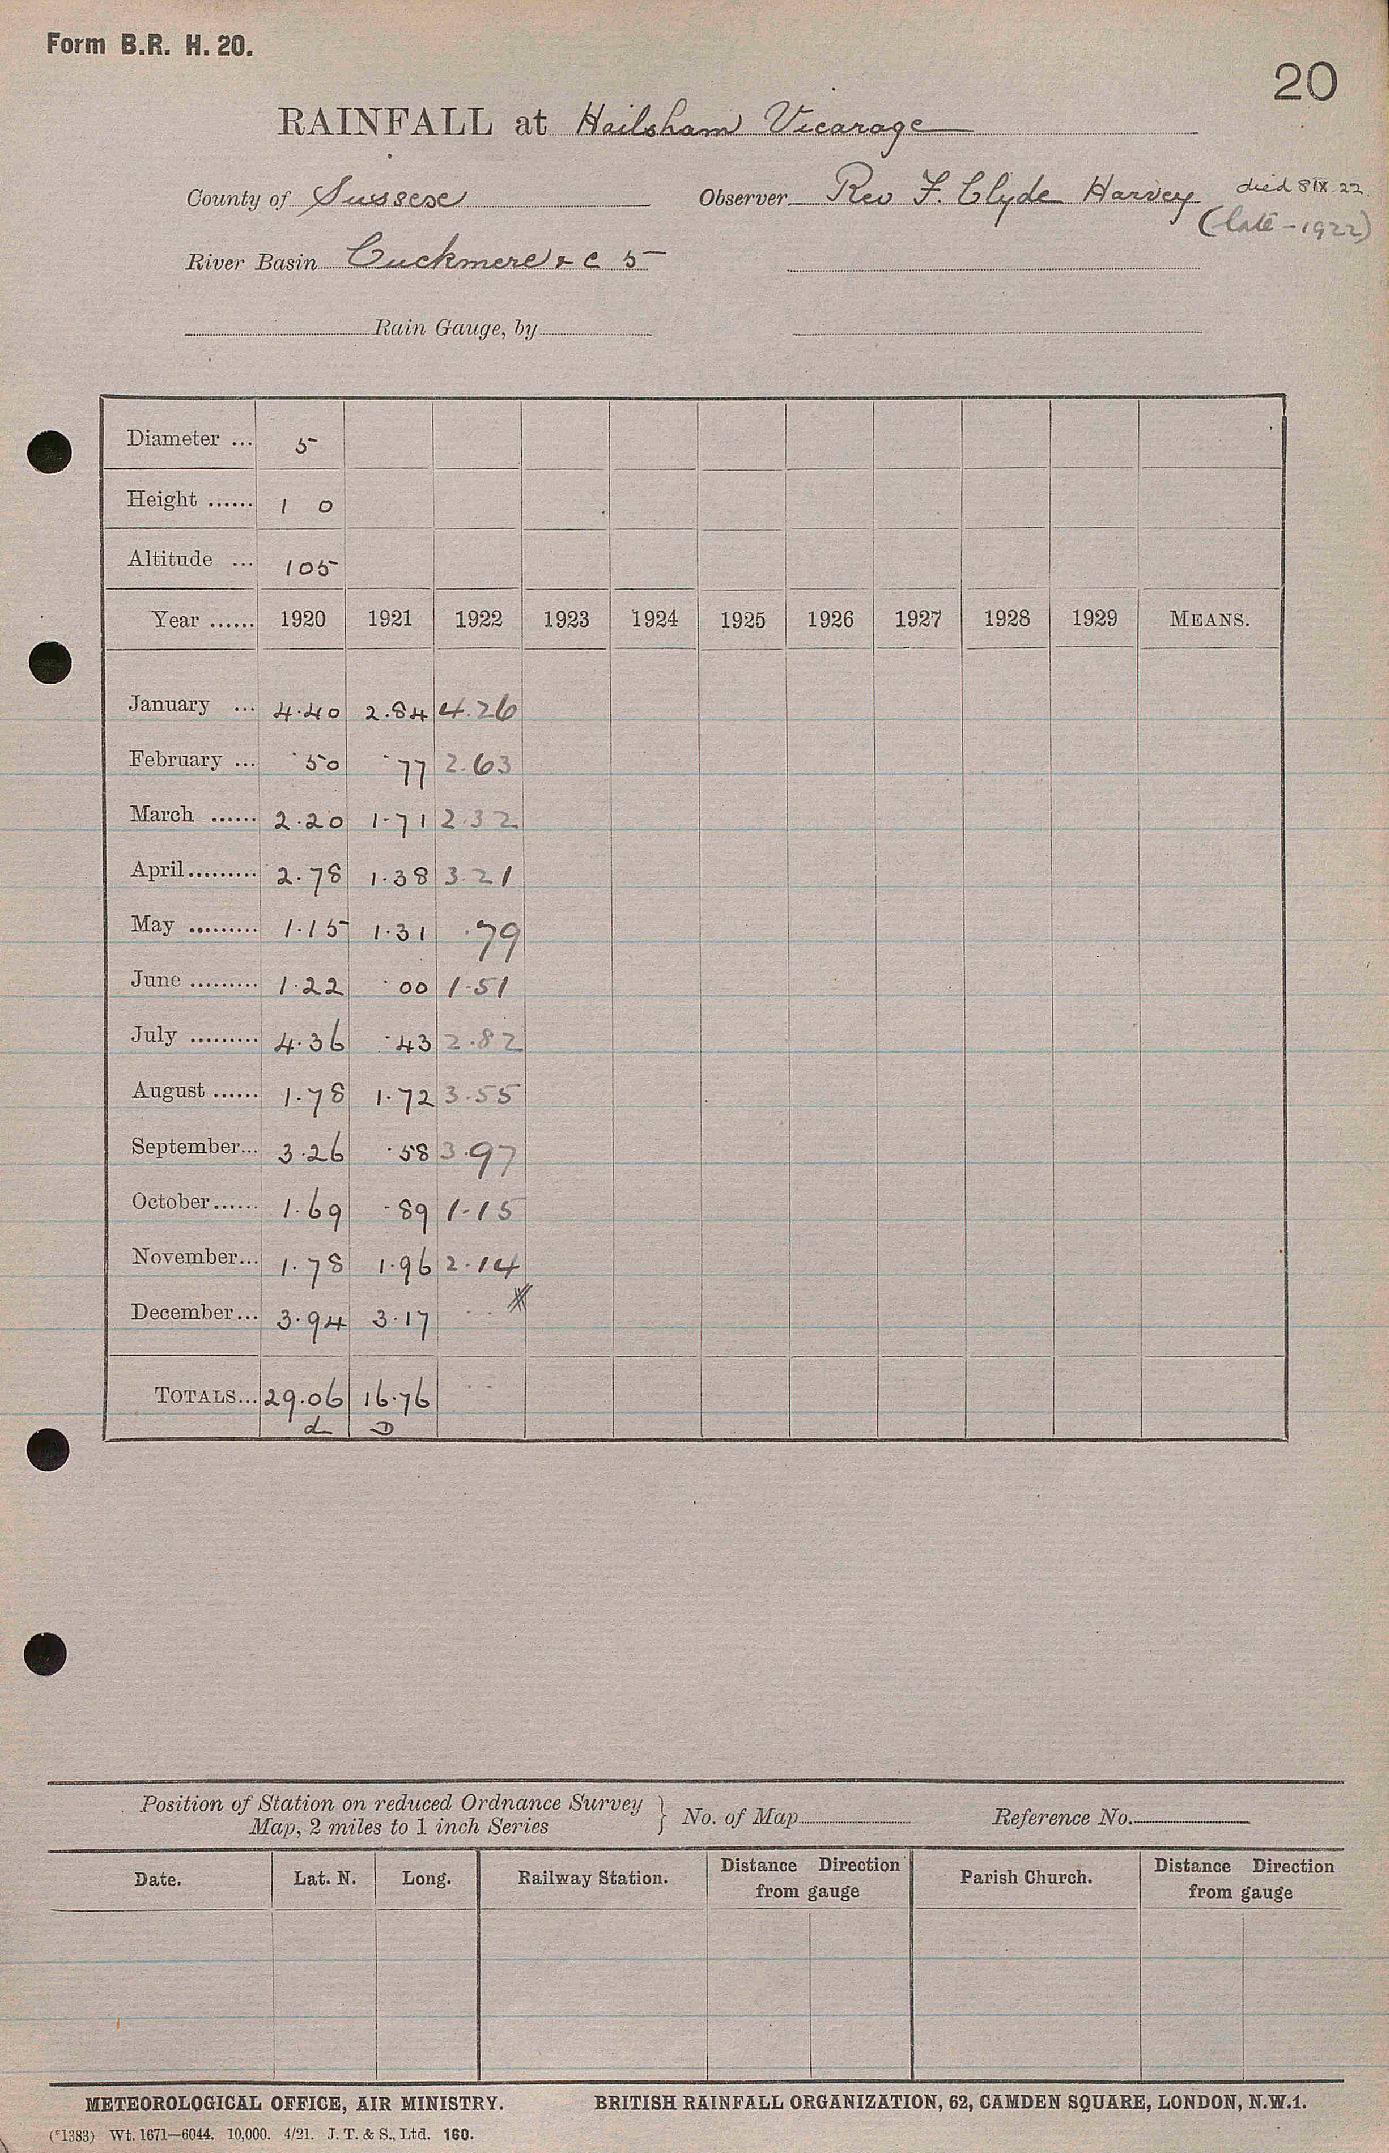 Form B.R. H. 20.
20
RAINFALL at Hailsham Vicarage
County of Sussex Observer Rev F. Clyde Harvey died 8 IX 22
(late - 1922)
River Basin Cuckmere & C 5
Rain Gauge, by
Diameter ... 5
Height ...... 1 0
Altitude ... 105
Year ...... 1920 1921 1922 1923 1924 1925 1926 1927 1928 1929 MEANS.
January ... 4.40 2.84 4.26
February ... .50 .77 2.63
March ...... 2.20 1.71 2.32
April......... 2.78 1.38 3.21
May ......... 1.15 1.31 .79
June ......... 1.22 .00 1.51
July ......... 4.36 .43 2.82
August ...... 1.78 1.72 3.55
September... 3.26 .58 3.97
October...... 1.69 .89 1.15
November... 1.78 1.96 2.14
December... 3.94 3.17
TOTALS... 29.06 16.76
d D
Position of Station on reduced Ordnance Survey
Map, 2 miles to 1 inch Series } No. of Map Reference No.
Date. Lat. N. Long. Railway Station. Distance Direction from gauge Parish Church. Distance Direction from gauge
METEOROLOGICAL OFFICE, AIR MINISTRY. BRITISH RAINFALL ORGANIZATION, 62, CAMDEN SQUARE, LONDON, N.W.1.
(*1383) Wt. 1671—6044. 10,000. 4/21. J. T. & S., Ltd. 160.